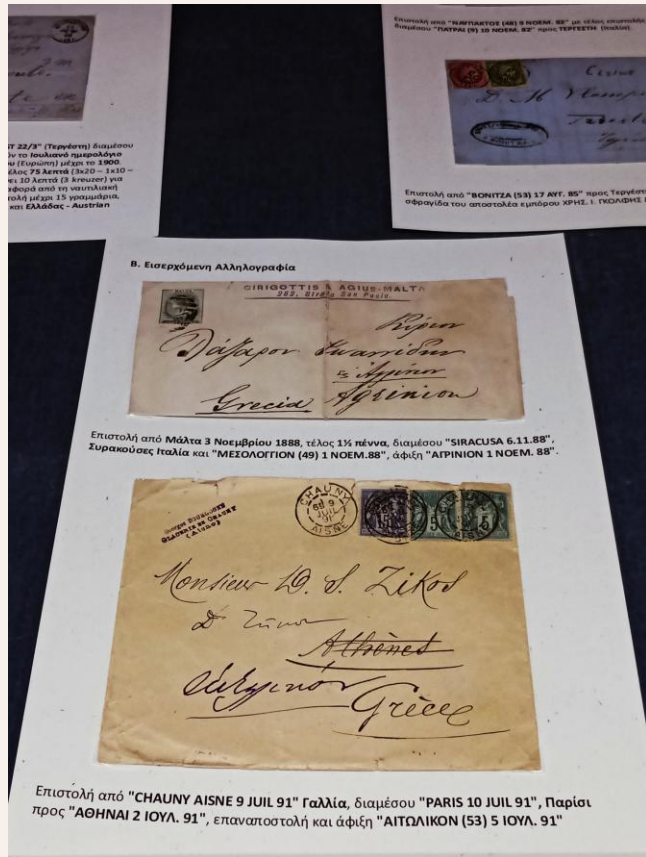 ST 22/3" (Τεργέστη) διαμέσου
ύν το Ιουλιανό ημερολόγιο
ου (Ευρώπη) μέχρι το 1900.
έλος 75 λεπτά (3x20 – 1x10 –
ει 10 λεπτά (3 kreuzer) για
αφορά από τη ναυτιλιακή
τολή μέχρι 15 γραμμάρια,
και Ελλάδας - Austrian
Επιστολή από "ΝΑΥΠΑΚΤΟΣ (48) 9 ΝΟΕΜ. 82" με τέλος επιστολής
διαμέσου "ΠΑΤΡΑΙ (9) 10 ΝΟΕΜ. 82" προς ΤΕΡΓΕΣΤΗ. (Ιταλία).
D. M.
Επιστολή από "ΒΟΝΙΤΖΑ (53) 17 ΑΥΓ. 85" προς Τεργέστη
σφραγίδα του αποστολέα εμπόρου ΧΡΗΣ. Ι. ΓΚΟΛΦΗΣ
Β. Εισερχόμενη Αλληλογραφία
CIRIGOTTIS & AGIUS-MALTA
262, Strada San Paolo.
Κύριον
Λάζαρον Ιωαννίδην
εἰς Ἀγρίνιον
Grecia Agrinion
Επιστολή από Μάλτα 3 Νοεμβρίου 1888, τέλος 1½ πέννα, διαμέσου "SIRACUSA 6.11.88",
Συρακούσες Ιταλία και "ΜΕΣΟΛΟΓΓΙΟΝ (49) 1 ΝΟΕΜ.88", άφιξη "ΑΓΡΙΝΙΟΝ 1 ΝΟΕΜ. 88".
GLACERIE DE CHAUNY
(Aisne)
CHAUNY
9
JUIL
91
AISNE
15
5
5
Monsieur D. S. Zikos
Δ Ζῖκον
Athènes
Grèce
Επιστολή από "CHAUNY AISNE 9 JUIL 91" Γαλλία, διαμέσου "PARIS 10 JUIL 91", Παρίσι
προς "ΑΘΗΝΑΙ 2 ΙΟΥΛ. 91", επαναποστολή και άφιξη "ΑΙΤΩΛΙΚΟΝ (53) 5 ΙΟΥΛ. 91"